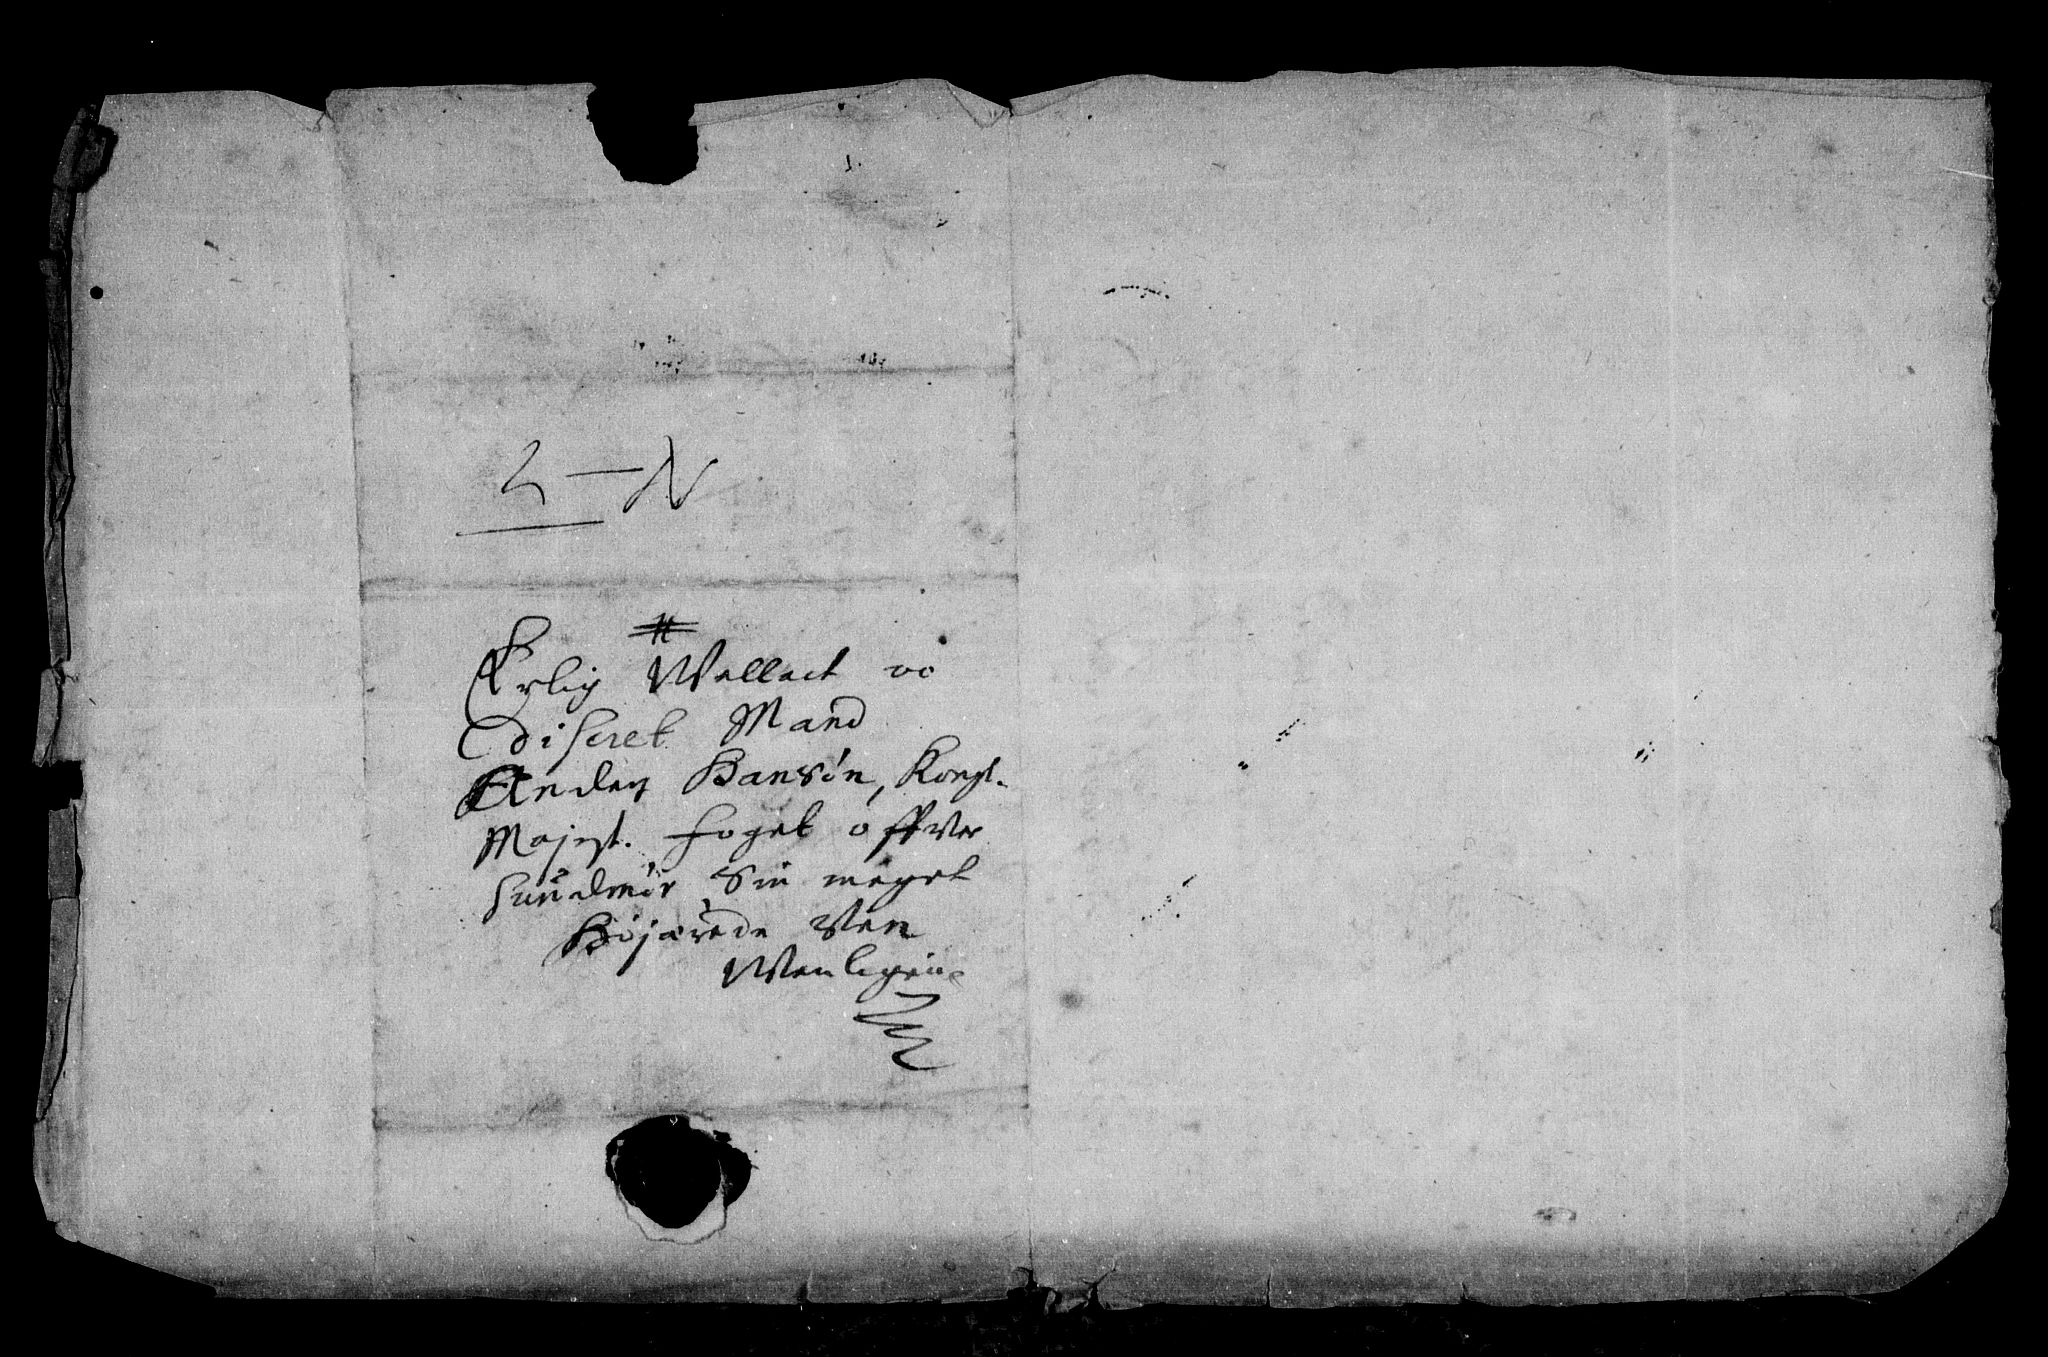 2 — N
Erlig Wellact oc
discret Mand
Anders Hansøn, Kongl.
Majest. Foget offver
Sundmør Sin meget
Højærede Ven
Wenligen